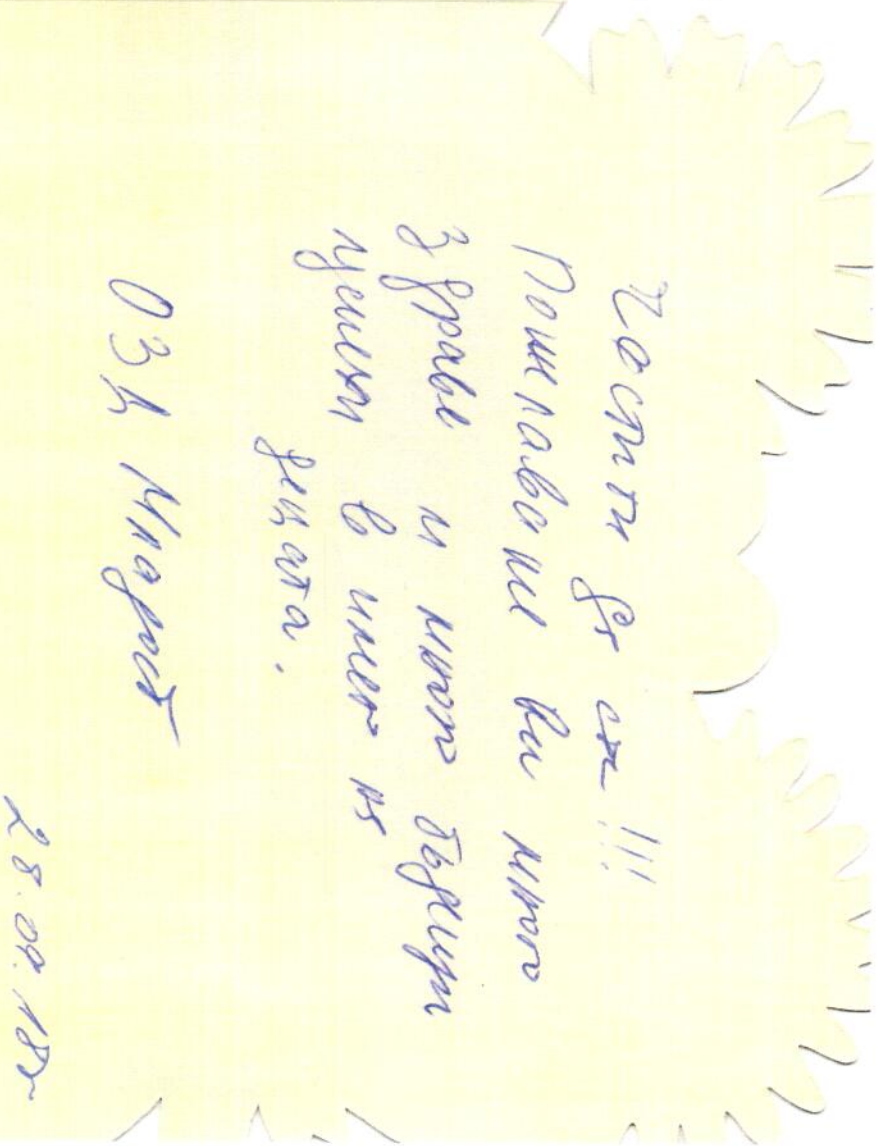 Честити да сте!!!
Пожелаваме ви много
здраве и много бъдещи
успехи в името на
децата.
ОЗД Младост
28.09.18г